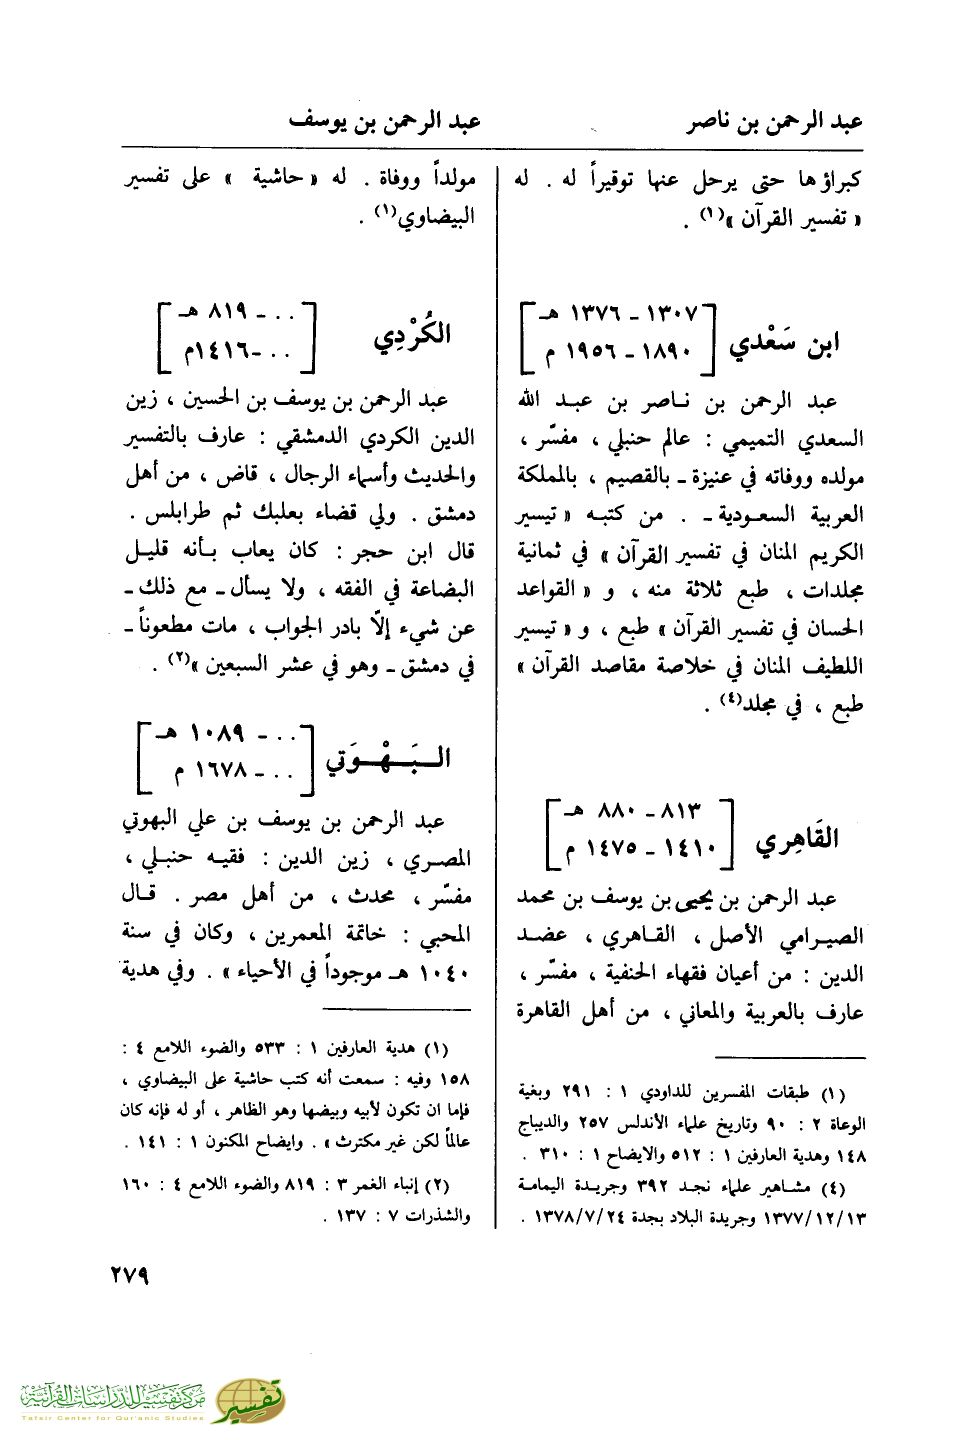 عبد الرحمن بن ناصر
عبد الرحمن بن يوسف
كبراؤها حتى يرحل عنها توقيراً له . له
« تفسير القرآن »(١) .
ابن سَعْدي
[ ١٣٠٧ - ١٣٧٦ هـ
١٨٩٠ - ١٩٥٦ م ]
عبد الرحمن بن نـاصر بن عبـد الله
السعدي التميمي : عالم حنبلي ، مفسّر ،
مولده ووفاته في عنيزة - بالقصيم ، بالمملكة
العربية السعودية - . من كتبه « تيسير
الكريم المنان في تفسير القرآن » في ثمانية
مجلدات ، طبع ثلاثة منه ، و « القواعد
الحسان في تفسير القرآن » طبع ، و « تيسير
اللطيف المنان في خلاصة مقاصد القرآن »
طبع ، في مجلد(٤) .
القَاهِري
[ ٨١٣ - ٨٨٠ هـ
١٤١٠ - ١٤٧٥ م ]
عبد الرحمن بن يحيى بن يوسف بن محمد
الصيرامي الأصل ، القـاهري ، عضـد
الدين : من أعيان فقهاء الحنفية ، مفسّر ،
عارف بالعربية والمعاني ، من أهل القاهرة
(١) طبقات المفسرين للداودي ١ : ٢٩١ وبغية
الوعاة ٢ : ٩٠ وتاريخ علماء الأندلس ٢٥٧ والديباج
١٤٨ وهدية العارفين ١ : ٥١٢ والايضاح ١ : ٣١٠ .
(٤) مشـاهير علماء نجـد ٣٩٢ وجريـدة اليمامـة
١٣٧٧/١٢/١٣ وجريدة البلاد بجدة ١٣٧٨/٧/٢٤ .
مولداً ووفاة . له « حاشية » على تفسير
البيضاوي(١) .
الكُرْدِي
[ . . - ٨١٩ هـ
. . - ١٤١٦م ]
عبد الرحمن بن يوسف بن الحسين ، زين
الدين الكردي الدمشقي : عارف بالتفسير
والحديث وأسماء الرجال ، قاض ، من أهل
دمشق . ولي قضاء بعلبك ثم طرابلس .
قال ابن حجر : كان يعاب بـأنه قليـل
البضاعة في الفقه ، ولا يسأل - مع ذلك -
عن شيء إلّا بادر الجواب ، مات مطعوناً -
في دمشق - وهو في عشر السبعين »(٢) .
الـبَـهْـوَتي
[ . . - ١٠٨٩ هـ
. . - ١٦٧٨ م ]
عبد الرحمن بن يوسف بن علي البهوتي
المصري ، زين الدين : فقيـه حنبلي ،
مفسّر ، محدث ، من أهل مصر . قـال
المحبي : خاتمة المعمرين ، وكان في سنة
١٠٤٠ هـ موجوداً في الأحياء » . وفي هدية
(١) هدية العارفين ١ : ٥٣٣ والضوء اللامع ٤ :
١٥٨ وفيه : سمعت أنه كتب حاشية على البيضاوي ،
فإما ان تكون لأبيه وبيضها وهو الظاهر ، أو له فإنه كان
عالماً لكن غير مكترث » . وايضاح المكنون ١ : ١٤١ .
(٢) إنباء الغمر ٣ : ٨١٩ والضوء اللامع ٤ : ١٦٠
والشذرات ٧ : ١٣٧ .
٢٧٩
مركز تفسير للدراسات القرآنية
Tafsir Center for Qur'anic Studies
تفسير